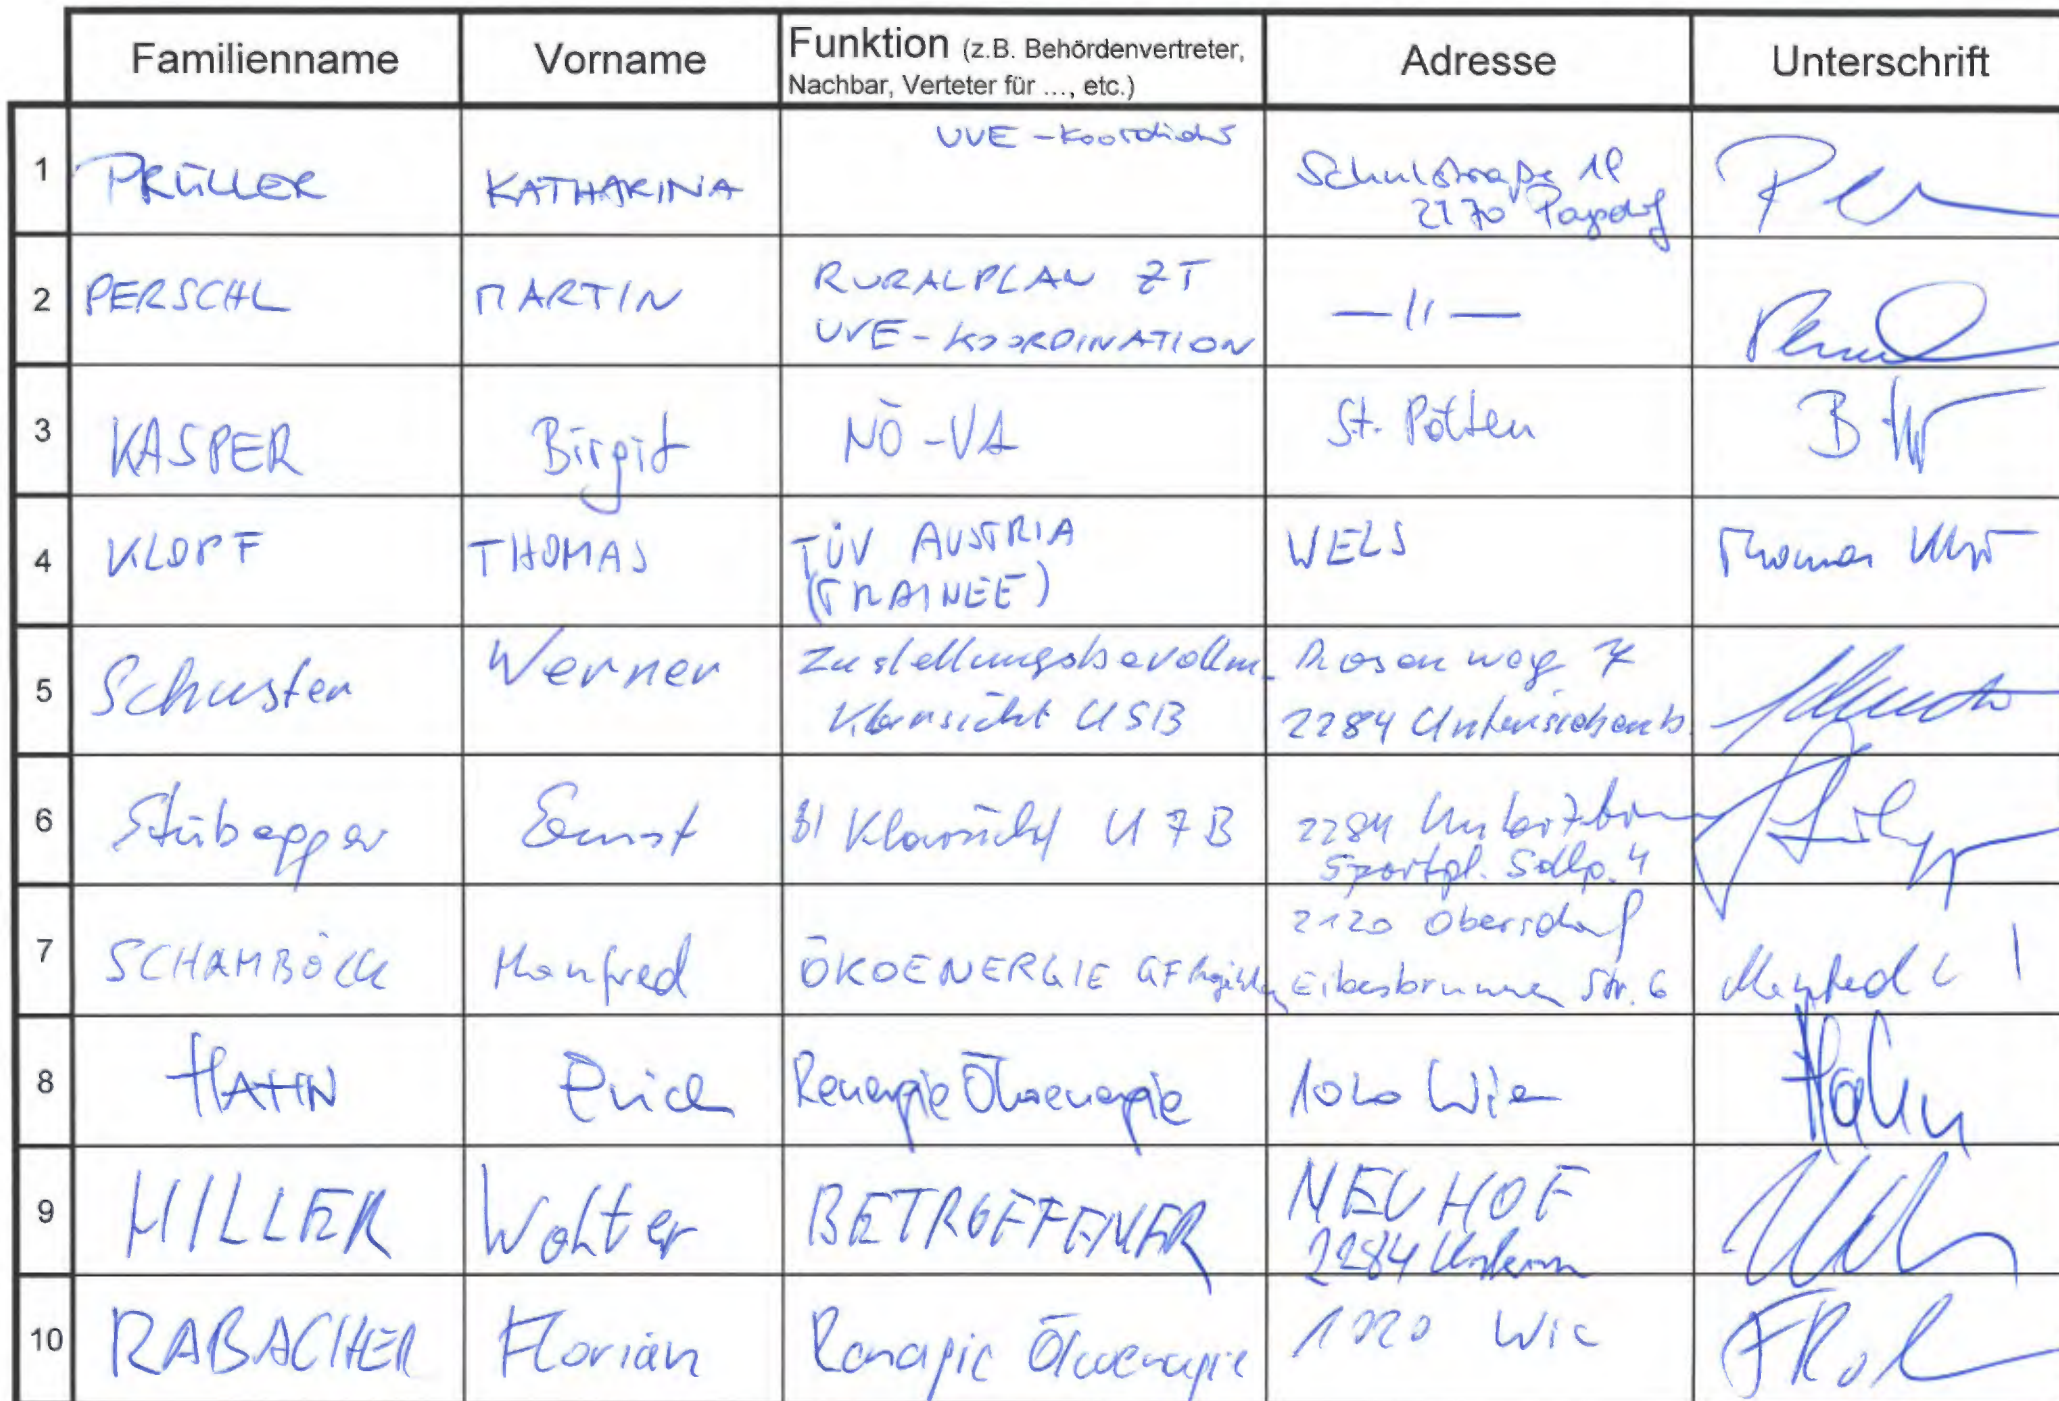 Familienname Vorname Funktion (z.B. Behördenvertreter, Adresse Unterschrift
Nachbar, Verteter für ..., etc.)
UVE-Koordinat
1 PRÜLLER KATHARINA Schulstraße 19
2170 Poysdorf
2 PERSCHL MARTIN RURALPLAN ZT — 11 —
UVE-KOORDINATION
3 KASPER Birgit NÖ-VA St. Pölten
4 KLOPF THOMAS TÜV AUSTRIA WELS Thomas
(TRAINEE)
5 Schuster Werner Zustellungsbevollm. Rosenweg 7
Klarsicht USB 2284 Untersiebenb.
6 Stübegger Ernst BI Klarsicht U7B 2284
Sportpl. Sdlg. 4
7 SCHAMBÖCK Manfred ÖKOENERGIE GF 2120 Obersdorf
Eibesbrunner Str. 6 Manfred
8 HAHN Erich Renergie Ökoenergie 1020 Wien Hahn
9 MILLER Walter BETROFFENER NEUHOF
2284
10 RABACHER Florian Renergie Ökoenergie 1020 Wien